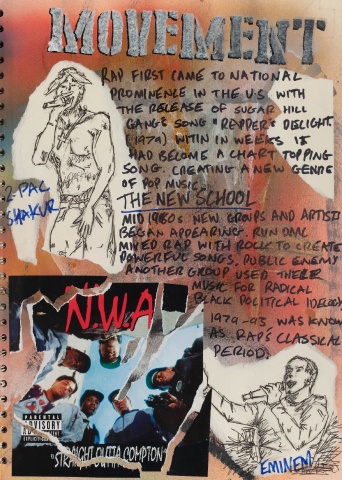 MOVEMENT
RAP FIRST CAME TO NATIONAL
PROMINENCE IN THE U.S WITH
THE RELEASE OF SUGAR HILL
GANG'S SONG "RAPPER'S DELIGHT
(1979) WITIN IN WEEKS IT
HAD BECOME A CHART TOPPING
SONG. CREATING A NEW GENRE
OF POP MUSIC.
THE NEW SCHOOL
MID 1980s NEW GROUPS AND ARTIST
BEGAN APPEARING. RUN DMC
MIXED RAP WITH ROCK TO CREATE
POWERFUL SONGS. PUBLIC ENEMY
ANOTHER GROUP USED THEIR
MUSIC FOR RADICAL
BLACK POLITICAL
1979-93 WAS KNOW
AS RAP'S CLASSICAL
PERIOD.
2-PAC
SHAKUR
N.W.A
PARENTAL
ADVISORY
EXPLICIT CONTENT
"STRAIGHT OUTTA COMPTON"
EMINEM